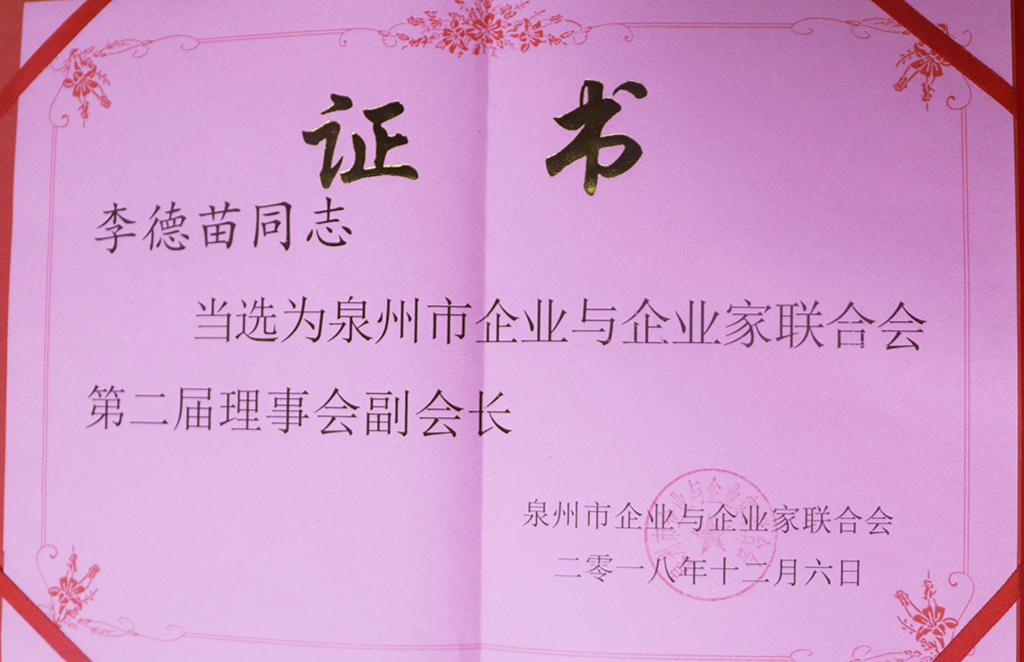 证 书
李德苗同志
当选为泉州市企业与企业家联合会
第二届理事会副会长
泉州市企业与企业家联合会
二零一八年十二月六日